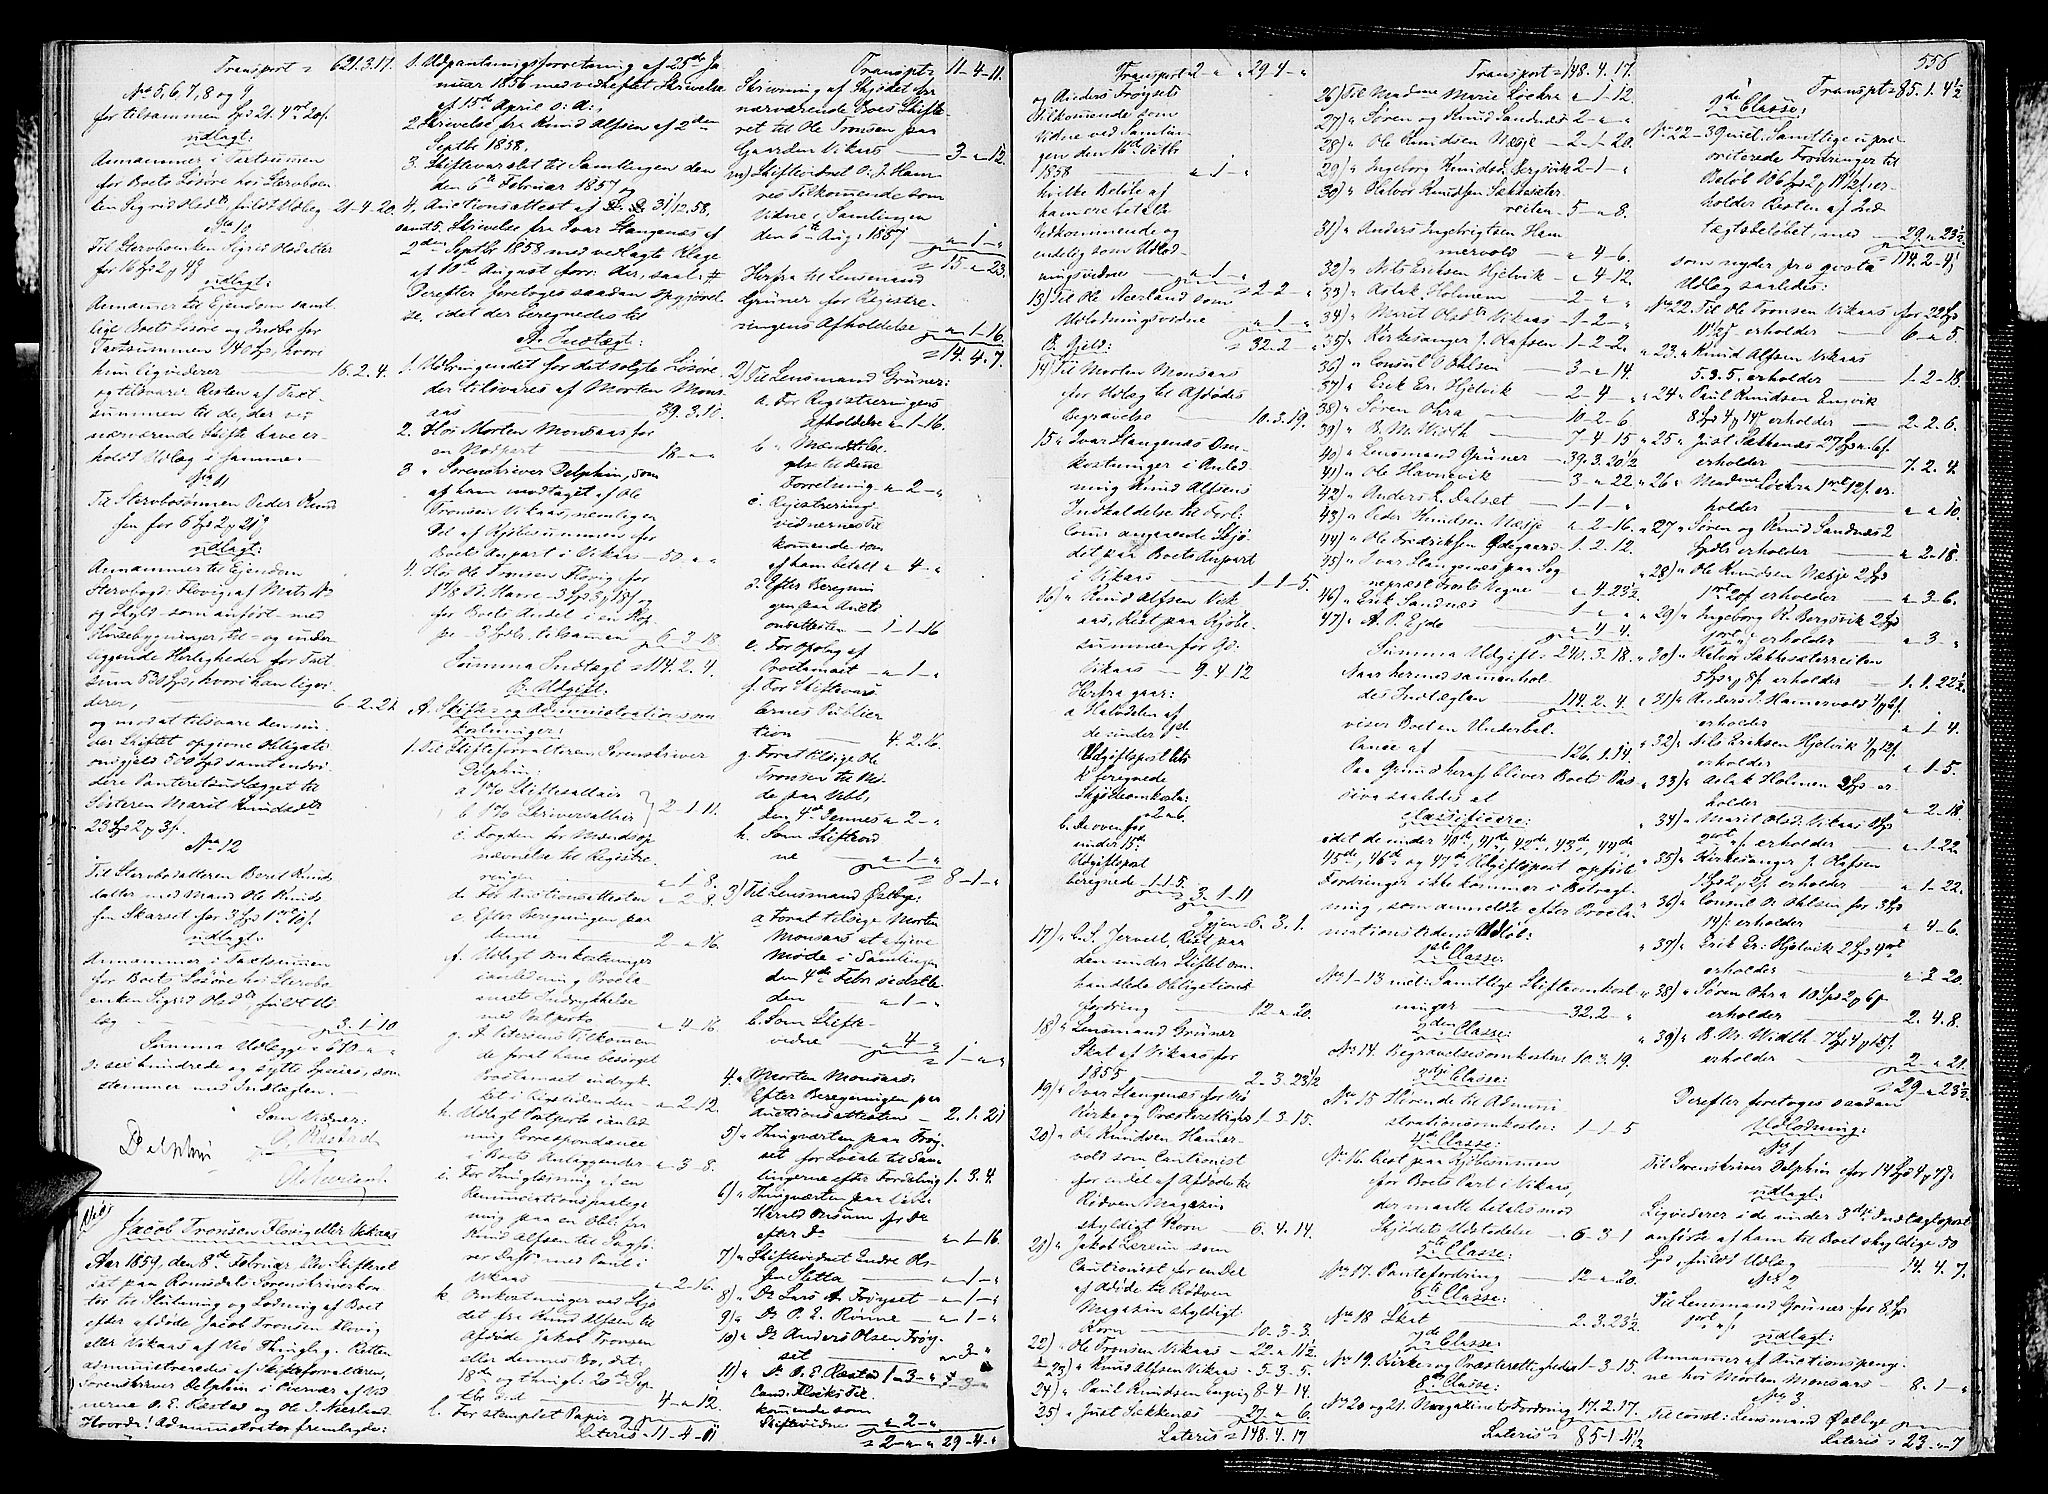 Transport = 621.3.17.
No 5, 6, 7, 8 og 9
for tilsammen Spd 21. 4 ort 20 s.
udlagt:
Annammer i Taxtsummen
for Boets Løsøre hos Stervboen
ken Sigrid Olsdtr fuldt Udlæg 21-4-20.
No 10
Til Stervboenken Sigrid Olsdatter
for 16 Spd 2 4
udlagt:
Annamer til Ejendom samt
lige Boets Løsøre og Indbo for
Taxtsummen 140 Spd, hvori
hun ligviderer 16. 2. 4.
og tilsvarer Resten af Taxt-
summen til de, der ved
nærværende Skifte have er-
holdt Udlæg i samme.
No 11
Til Stervbosønnen Peder Knud
sen for 6 Spd 2 21
udlagt:
Annammer til Ejendom
og Skyld som anført med
Huusebygninger, til- og under
liggende Herligheder for Taxt
sum 530 Spd, hvori han ligvi
derer, 6-2-21
og mod at tilsvare den un
der Skiftet opgivne Obligati
onsgjeld 500 Spd samt endvi
dere Panteretsudlægget til
Søsteren Marit Knudsdtr
23 Spd 2 3 s.
No 12
Til Stervbodatteren Beret Knuds
datter med Mand Ole Knud
sen Skarset for 3 Spd 1 ort 10 s.
udlagt:
Annammer i Taxtsummen
for Boets Løsøre hos Stervbo
enken Sigrid Olsdtr, fuldt Ud
læg 3. 1. 10
Summa Udlægge = 670 - " "
: sex hundrede og sytti Species, som
stemmer med Indtægten.
Som Vidner:
Delphin
O. Ræstad
O. Nerland
Jacob Tronsen Flovig eller Vikaas
Aar 1859, den 8de Februar blev Skifteret
sat paa Romsdals Sorenskriverkon
tor til Slutning og Lodning af Boet
efter afdøde Jacob Tronsen Flovig
eller Vikaas af Veø Thinglag. Retten
administreredes af Skifteforvalteren,
Sorenskriver Delphin i Overvær af Vid
nerne O. E. Ræstad og Ole J. Nerland.
Hvorda: Administrator fremlagde:
1. Udpantningsforretning af 25de Ja
nuar 1856 med vedheftet Skrivelse
af 15de April s. A.;
2. Skrivelse fra Knud Alfsen af 2den
Septbr 1858.
3. Skiftevarslet til Samlingen den
den 6te Februar 1857 og
4. Auctionsattest af 31/12 58,
samt 5. Skrivelse fra Ivar Slangenæs af
2den Septbr 1858 med vedlagte Klage
af 10de August forr: Aar, saal:
Derefter foretoges saadan Opgjørel
se, idet der beregnedes til
A. Indtægt:
1. Udbringendet for det solgte Løsøre
der tilsvares af Morten Mons-
aas 39. 3. 10.
2. Hos Morten Monsaas for
en Modpart 18 - " - "
3. " Sorenskriver Delphin, som
af ham modtaget af Ole
Tronsen Vikaas, nemlig en
Del af Kjøbesummen for
Boets Anpart i Vikaas 50 - " - "
4. Hos Ole Tronsen Flovig for
for Boets Andel i en Kop
pe - 3 Spdlr. tilsammen 6. 3. 18.
Summa Indtægt = 114. 2. 4.
B. Udgift:
A. Skifte- og Administrationsom
kostninger:
1. Til Skifteforvalteren, Sorenskriver
Delphin:
a 1 % Skiftesallair
b 1 % Skriversallair } 2-1-11.
c Fogden for Mandsop
nævnelse til Registre
ringen " 1. 8.
d. For Auctionsattesten " 2-8.
e. Efter Beregningen paa
denne 2-"-16.
f. Udlagt omkostninger
i anledning Procla-
mats Indrykkelse
med Postporto " 4-16.
g. A. Petersens Tilkomen
de forat have besørget
Proclamaet indryk-
ket i Rigstidenden " 2-12.
h. Udlagt Postporto i anled
ning Correspondance
i Boets Anliggender " 3-8.
i. For Thinglæsning af en
Renunciationspaateg
ning paa en Obl: fra
Knud Alfsen til Sagfø
rer Daft, med Pant i
Vikaas " 2-16.
k Omkostninger ved Skjø
det fra Knud Alfsen til
Afdøde Jakob Tronsen
eller dennes Bo, dat:
18de og thingl: 20de Sep
tbr 4 - " 12.
l. For stemplet Papir
Lateris = 11-4-11
Transpt = 11-4-11.
Skrivning af Skjødet fra
nærværende Boes Skifte-
ret til Ole Tronsen paa
Gaarden Vikaas 3-"-12.
m) Skiftevidnet O. J. Ham-
res Tilkommende som
Vidne i Samlingen
den 6te Aug: 1857 " 1 "
= 15 " 23.
Herfra til Lensmand
Grüner for Registre-
ringens Afholdelse " 1-16.
= 14. 4. 7.
2) Til Lensmand Grüner:
a. For Registreringens
Afholdelse " 1-16.
b " Mandtils-
gelse til denne
Forretning " 2-"
c. Registrering
vidnernes Til
komende som
af ham betalt " 4-"
d. Efter Beregnin
gen paa Aucti
onsattesten 1-1-16
e. For Opslag af
Proclamaet " 1-"
f. For Skiftevars
lernes Publica
tion 4. 2. 16.
g. Forat tilsige Ole
Tronsen til Mø
de paa Vebl.
den 4de dennes " 2-"
h. Som Skifte vid
ne " 1-"
8-1-"
3) Til Lensmand Østbye:
a Forat tilsige Morten
Monsaas at afgive
Møde i Samlingen
den 4de Febr: sidstle
den " 1-"
b. Som Skifte-
vidne " 4-"
1-"-"
4. " Morten Monsaas:
Efter Beregningen paa
Auctionsattesten 2. 1. 21
5) " Thingværten paa Frøy
set for Locale til Sam
lingerne efter Fordeling 1. 3. 4.
6) " Thingværten paa Lever
Harald Onsum for Do
efter Do " 1-16.
7) " Skiftevidnet Endre Ols
sen Sletta " 1-"
8) " Do Lars A. Frøyset " 1-"
9) " Do P. E. Rønne " 1-"
10) " Do Anders Olsen Frøy
set " 3-"
11) " Do O. E. Ræstad 1-3-"
komende som
Skiftevidne " 2-"
= 2-"-" 29-4-"
Transport 2 - " " 29-4-"
og Anders Frøysets
Tilkomende som
Vidne ved Samlin
gen den 16de Octbr
1858 " 1-"
hvilke Beløb af
ham ere betalte
Vedkommende og
endelig som Udlod
ningsvidne " 1-"
= 2-2-"
13) Til Ole Nerland som
Udlodningsvidne " 1-"
= 32. 2-"
B. Gjeld:
14) Til Morten Monsaas
for Udlæg til Afdødes
Begravelse 10. 3. 19.
15) " Ivar Slangenæs Om-
kostninger i Anled
ning Knud Alfsens
Indkaldelse til Forl:
Comis: angaaende Skjø
det paa Boets Anpart
i Vikaas 1-1-5.
16) " Knud Alfsen Vik
aas, Rest paa Kjøbe
summen for Gd.
Vikaas 9. 4. 12
Herfra gaar:
a Halvdelen af
de under 1ste
Udgiftspost Litr
k beregnede
Skjødeomkostn:
2 " 6.
b. De oven for
under 15de
Udgiftspost
beregnede 1-1-5.
3. 1-11
Igjen 6. 3. 1.
17) " C. S. Jervell, Rest paa
den under Skiftet om
handlede Obligations
fordring 12 " 20.
18) " Lensmand Grüner
Skat af Vikaas for
1855 2-3. 23 1/2
19) " Ivar Slangenæs for Veø
Kirke og Præsterettighed 1-3-15.
20) " Ole Knudsen Hamer-
vold som Cautionist
for endel af Afdøde til
Rødven Magazin
skyldigt Korn 6. 4. 14.
21) " Jakob Lereim som
Cautionist for en Del
af Afdøde til Rødven
Magazin skyldigt
Korn 10. 3-3.
22) " Ole Tronsen Vikaas 22. " 11 1/2
23) " Knud Alfsen Vikaas 5. 3. 5.
24) " Paul Knudsen Engvig 8-4-14.
25) " Just Sækkenæs 27 " 6.
Lateris = 148. 4. 17
Transport = 148. 4. 17.
26) Til Madme Marie Løchra " 1-12.
27) " Søren og Knud Sandnæs 2-"-"
28) " Ole Knudsen Næsje 2-1-20.
29) " Ingeborg Knudsd. Bergsvik 2-1-"
30) " Halvor Knudsen Sækkesæter
reiten 5-"-8.
31) " Anders Ingebrigtsen Ham
mervold " 4-6.
32) " Nils Eriksen Hjelvik " 4-12.
33) " Aslak Holmem 2-"-"
34) " Marit Olsdtr Vikaas 1-2-"
35) " Kirkesanger J. Olafsen 1-2-2.
36) " Consul O Ohlsen 3-"-14.
37) " Erik Er. Hjelvik 2-4-"
38) " Søren Okra 10-2-6
39) " B. M. Width 7-4-15
40) " Lensmand Grüner 39. 3. 20 1/2
41) " Ole Havnevik 3-"-22.
42) " Anders L. Dalset 1-1-"
43) " Peder Knudsen Næsje " 2-16.
44) " Ole Fredriksen Ødegaard 1. 2. 12.
45) " Ivar Slangenæs paa Sog
nepræst Frosts Vegne " 4. 23 1/2.
46) " Erik Sandnæs 1 "-"
47) " A. P. Ejde " 4 4.
Summa Udgift = 240. 3. 18.
Naar hermed samenhol
des Indtægten 114. 2. 4.
viser Boet en Underbal
lance af 126. 1. 14.
Paa Grund heraf bliver Boets Pas
siva saaledes at
classificere:
idet de under 40de, 41de, 42de, 43de, 44de
45de, 46de og 47de Udgiftspost opførte
Fordringer ikke kommer i Betragt-
ning, som anmeldte efter Procla-
mationstidens Udløb:
1ste Classe.
No 1-13 incl: Samtlige Skifteomkost
ninger 32. 2-"
2den Classe:
No 14. Begravelsesomkostn: 10. 3. 19.
3die Classe:
No 15 Henhørende til Admini
strationsomkostn: 1-1-5
4de Classe:
No 16. Rest paa Kjøbesummen
for Boets Part i Vikaas,
der maatte betales mod
Skjødets Udstedelse 6-3-1
5te Classe:
No 17. Pantefordring 12 " 20.
6te Classe:
No 18 Skat 2. 3. 23 1/2.
7de Classe:
No 19. Kirke og Præsterettighed 1-3-15.
8de Classe:
No 20 og 21. Magazinets Fordring 17. 2. 17.
Lateris = 85-1-4 1/2
556
Transpt = 85. 1. 4 1/2
9de Classe:
No 22-39 incl. Samtlige upri
oriterede Fordringer til
Beløb 106 Spd 2 19 1/2 s. er-
holder Resten af Ind
tægtsbeløbet, med 29. " 23 1/2.
114. 2-4
som nyder pro qvota
Udlæg saaledes:
No 22. Til Ole Tronsen Vikaas for 22 Spd
11 1/2 s. erholder 6-"-5.
" 23. " Knud Alfsen Vikaas
5. 3. 5, erholder 1-2-18.
" 24 " Paul Knudsen Engvik
8 Spd 4 14 s erholder 2. 2. 6.
" 25 " Just Sækkenæs 27 Spd " 6 s.
erholder 7. 2. 4.
" 26 " Madme Løchra 1 ort 12 s. er
holder " " 10.
" 27 " Søren og Knud Sandnæs 2
Spdlr erholder " 2-18.
" 28) " Ole Knudsen Næsje 2 Spd
1 ort 20 s erholder " 3-6.
" 29) " Ingeborg K. Bergsvik 2 Spd
1 ort erholder " 3-"
" 30) " Halvor Sækkesæterreiten
5 Spd " 8 s. erholder 1. 1. 22 1/2.
" 31) " Anders I. Hamervold 4 6 s.
erholder " 1-4.
" 32) " Nils Eriksen Hjelvik 4 12 s.
erholder " 1-5.
" 33) " Aslak Holmem 2 Spd er
holder " 2-18.
" 34) " Marit Olsd: Vikaas 1 Spd
2 ort " s. erholder " 1-22
" 35) " Kirkesanger J. Olafsen
1 Spd 2 2 s. erholder " 1-22.
" 36) " Consul O. Ohlsen for 3 Spd
14 s. erholder " 4-6.
" 37) " Erik Er. Hjelvik 2 Spd 4 ort
erholder " 3-20.
" 38) " Søren Okra 10 Spd 2 6 s.
erholder 2. 4. 8.
" 39) " B. M. Width 7 Spd 4 15 s.
erholder 2. " 21.
= 29-"-23 1/2.
Derefter foretoges saadan
Udlodning:
No 1
Til Sorenskriver Delphin for 14 Spd 4 7 s.
udlagt:
Ligviderer i de under 3die Indtægtspost
anførte af ham til Boet skyldige 50
Spd, fuldt Udlæg 14. 4. 7.
No 2
Til Lensmand Grüner for 8 Spd
1 ort " s.
udlagt:
Annamer af Auctionspeng-
ne hos Morten Monsaas 8. 1-"
No 3.
Til const: Lensmand Østbye
Lateris = 23. " 7